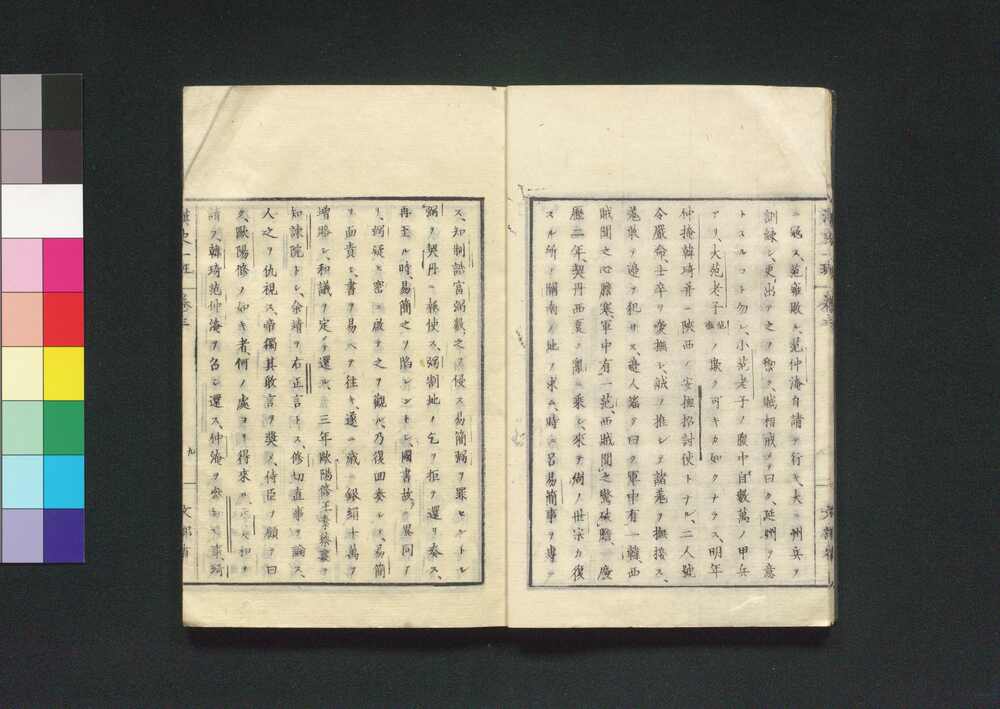 ニ冦ス、范雍敗ル、范仲淹自請テ行キ、大ニ州兵ヲ
訓練シ、更ニ出テ之ヲ禦ク、賊相戒メテ曰ク、延州ヲ意
トスルコト勿レ、小范老子ノ腹中自數萬ノ甲兵
アリ、大范老子ノ欺ク可キカ如クナラス、明年
仲掩韓琦ト並ニ陝西ノ安撫招討使トナル、二人號
令嚴命、士卒ヲ愛撫シ、誠ヲ推シテ諸羌ヲ撫接ス、
羌敢テ邊ヲ犯サス、邊人謡テ曰ク軍中有一韓、西
賊聞之心膽寒、軍中有一范、西賊聞之驚破膽、慶
歷二年、契丹西夏ノ亂ニ乘シ、來テ周ノ世宗カ復
スル所ノ關南ノ地ヲ求ム、時ニ呂易簡事ヲ專ニ
ス、知制誥富弼數之ヲ侵ス、易簡弼ヲ罪セントシ
弼ヲ契丹ニ報使ス、弼割地ノ乞ヲ拒ヲ還リ奏ス、
再至ル時、易簡之ヲ陷レントシ、國書故ニ異同ア
リ、弼疑ヒ密ニ啟テ之ヲ觀ル、乃復回奏シテ、易簡
ヲ面責シ、書ヲ易ヘテ往キ、遂ニ歲ニ銀絹十萬ヲ
增賂シ、和議ヲ定メテ還ル、三年歐陽修王素蔡襄ヲ
知諌院トシ、余靖ヲ右正言トス、修切直事ヲ論ス、
人之ヲ仇視ス、帝獨其敢言ヲ奬メ、侍臣ヲ顧テ曰
ク、歐陽修ノ如キ者、何ノ處ヨリ得來ル、
請フ、韓琦范仲淹ヲ召シ還ス、仲淹ヲ參知政事、琦
漢史一班
卷三
九
文部省